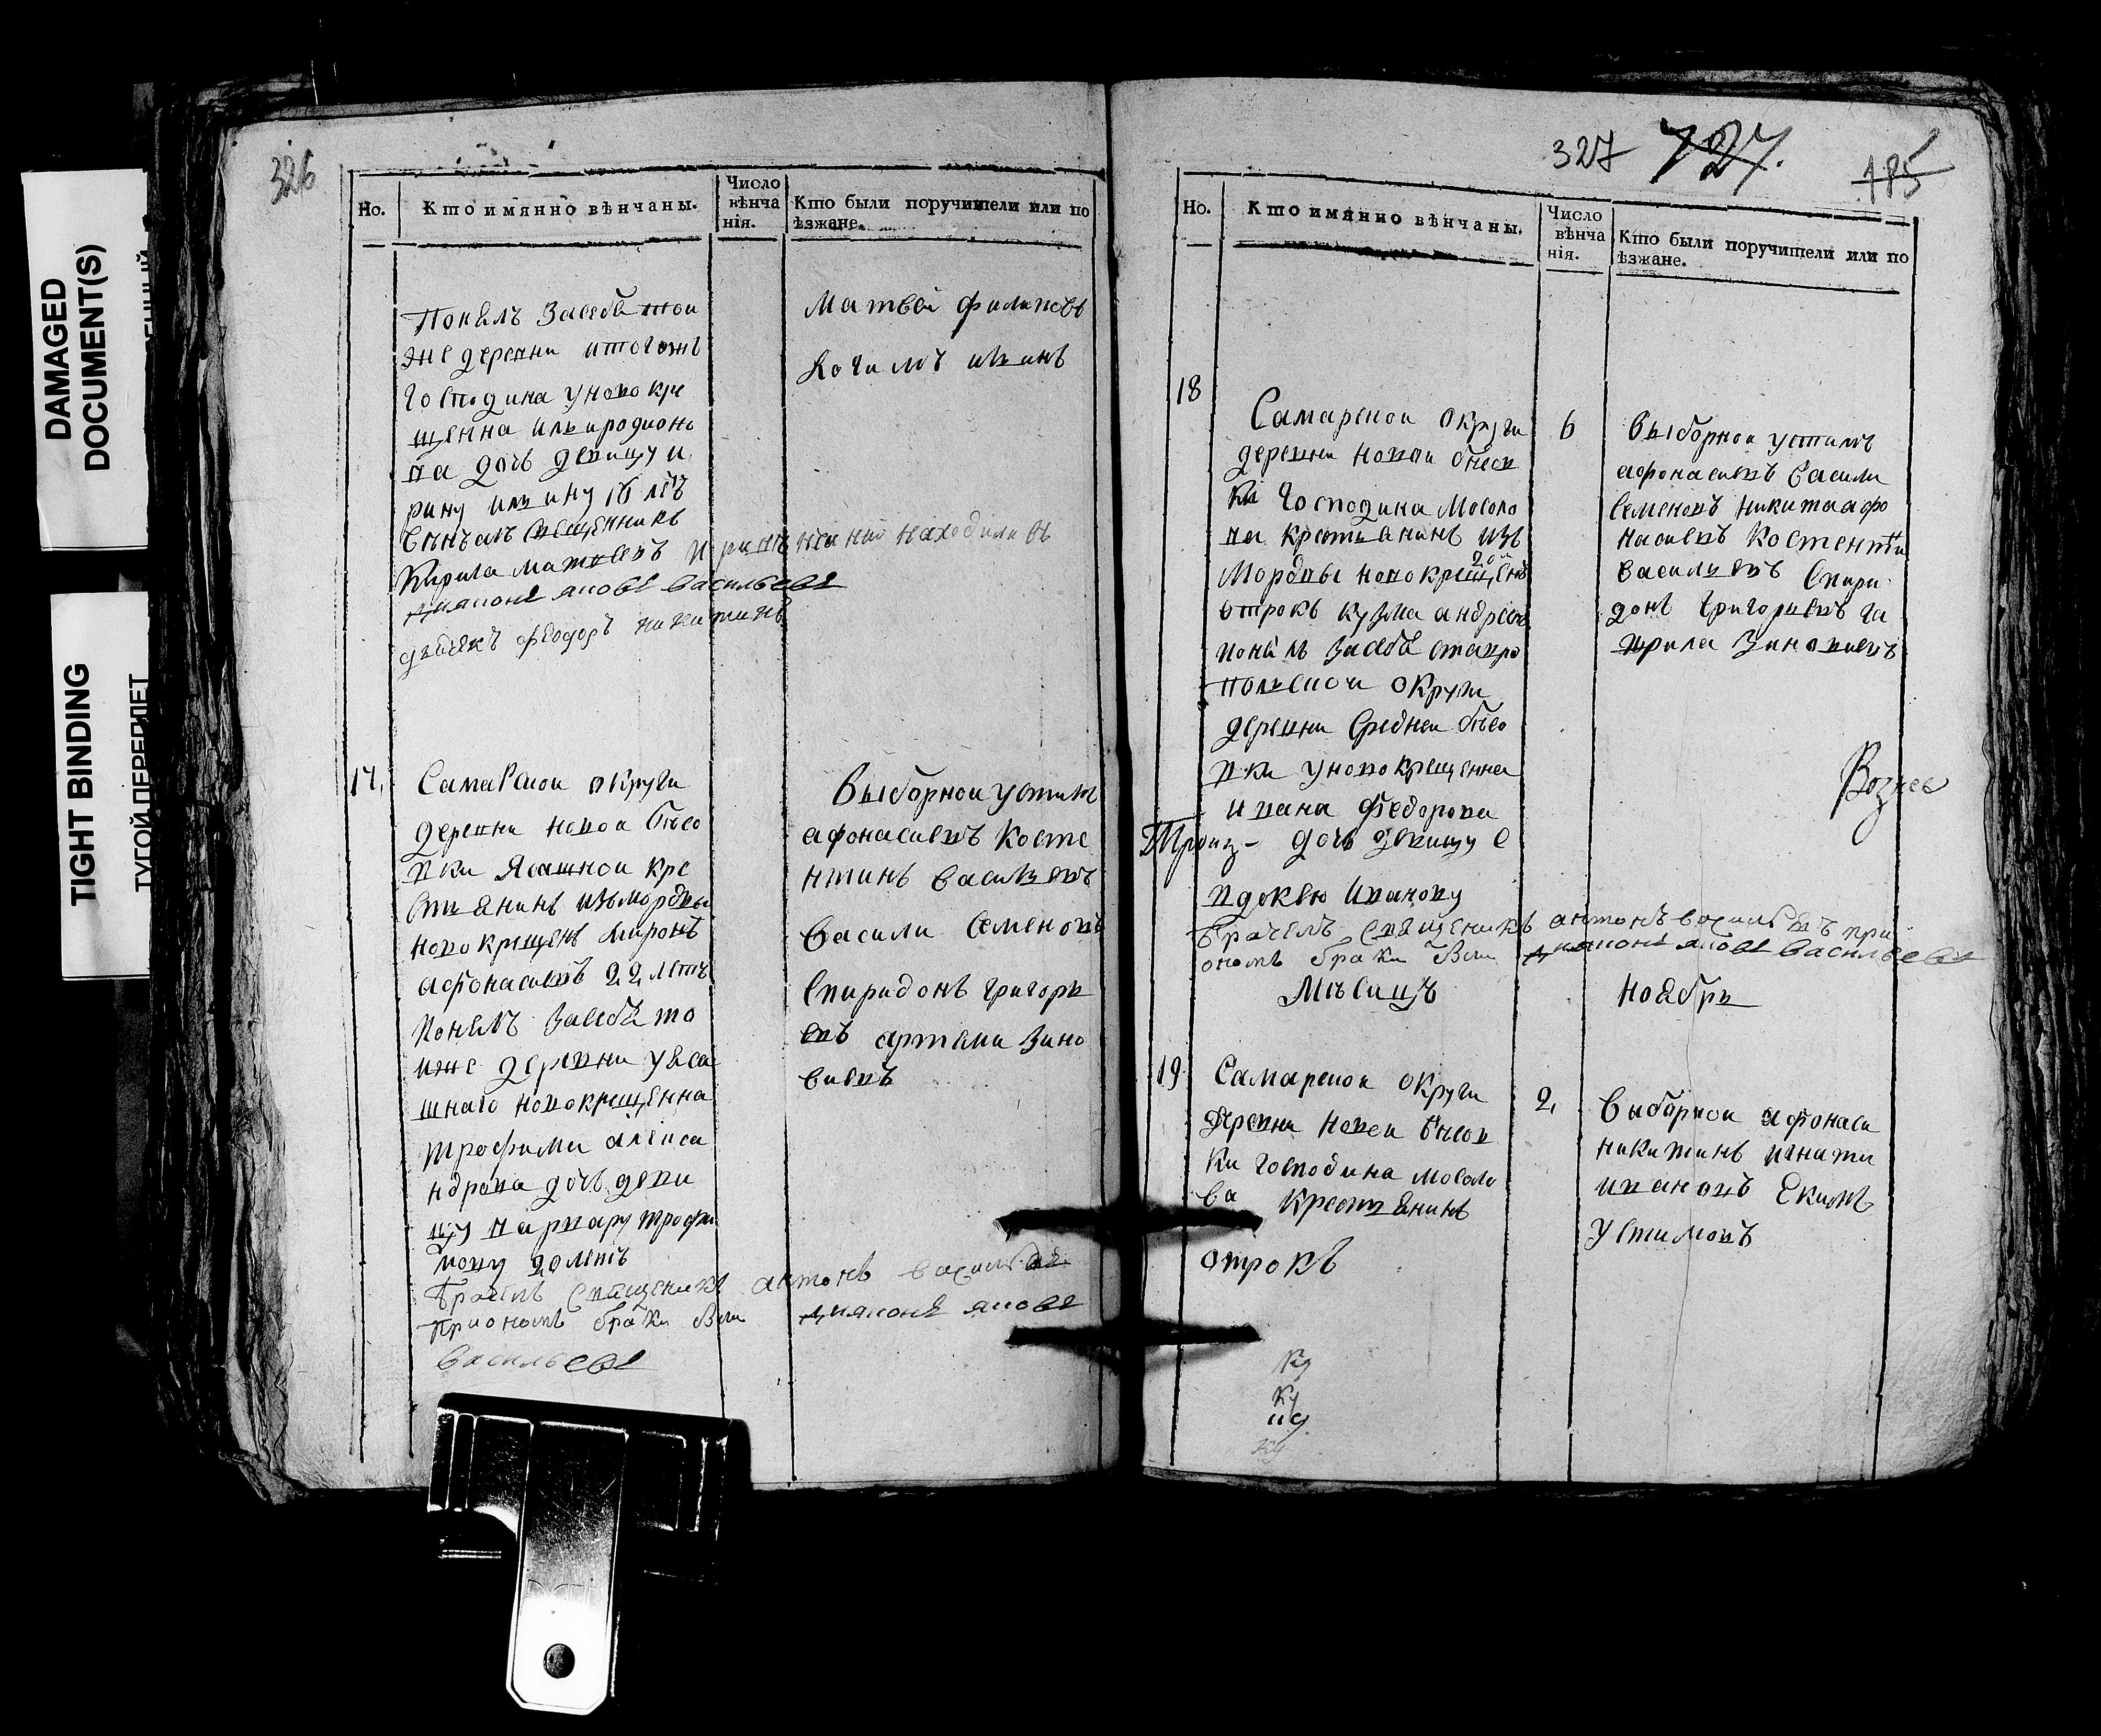 DAMAGED
DOCUMENT(S)
TIGHT BINDING
ТУГОЙ ПЕРЕПЛЕТ
326
Но.
Кто имянно вѣнчаны.
Число
вѣнча
нія.
Кто были поручители или по
ѣзжане.
Понялъ засебя тои
же деревни итогожъ
Господина уново кре
щенна
на дочь девицу и
рину 16 летъ
Венчалъ священникъ
Кирила Матвеевъ при венчании находились
дияконъ яковъ васильевъ
дьячекъ феодоръ никитинъ
Матвеи филиповъ
17.
Самарскои округи
деревни новои бесо
вки Ясашнои кре
стьянинъ измордвы
новокрещенъ Миронъ
афонасиевъ 22 летъ
понялъ засебя то
иже деревни уяса
шнаго новокрещенна
трофима алекса
ндрова дочь деви
цу варвару трофи
мову 20 летъ
Брачелъ священикъ антонъ васильевъ
приономъ браки были дияконъ яковъ
васильевъ
Выборнои устимъ
афонасиевъ Косте
нтинъ васильевъ
Васили Семеновъ
Спиридонъ григорь
евъ артеми Зино
виевъ
327
727.
185
Но.
Кто имянно вѣнчаны.
Число
вѣнча
нія.
Кто были поручители или по
ѣзжане.
18
Самарскои округи
деревни новои бесов
ки Господина Мосоло
ва крестьянинъ изъ
Мордвы новокрещенъ
отрокъ кузма андреевъ
понялъ засебя ставро
польскои округи
деревни Среднеи бесо
вки уновокрещенна
ивана Федорова
Троиц- дочь девицу е
вдокею Иванову
Брачелъ священикъ антонъ васильевъ при
ономъ браки были дияконъ яковъ васильевъ
6
Выборнои устимъ
афонасиевъ Васили
Семеновъ Никита афо
насиевъ Костентин
васильевъ Спири
донъ григориевъ га
врила Зиновиевъ
Вознес
Месицъ
Ноября
19
Самарскои округи
деревни Новеи бесов
ки Господина мосоло
ва крестьянинъ
отрокъ
2.
Выборнои афонаси
никитинъ игнати
ивановъ Екимъ
Устимовъ